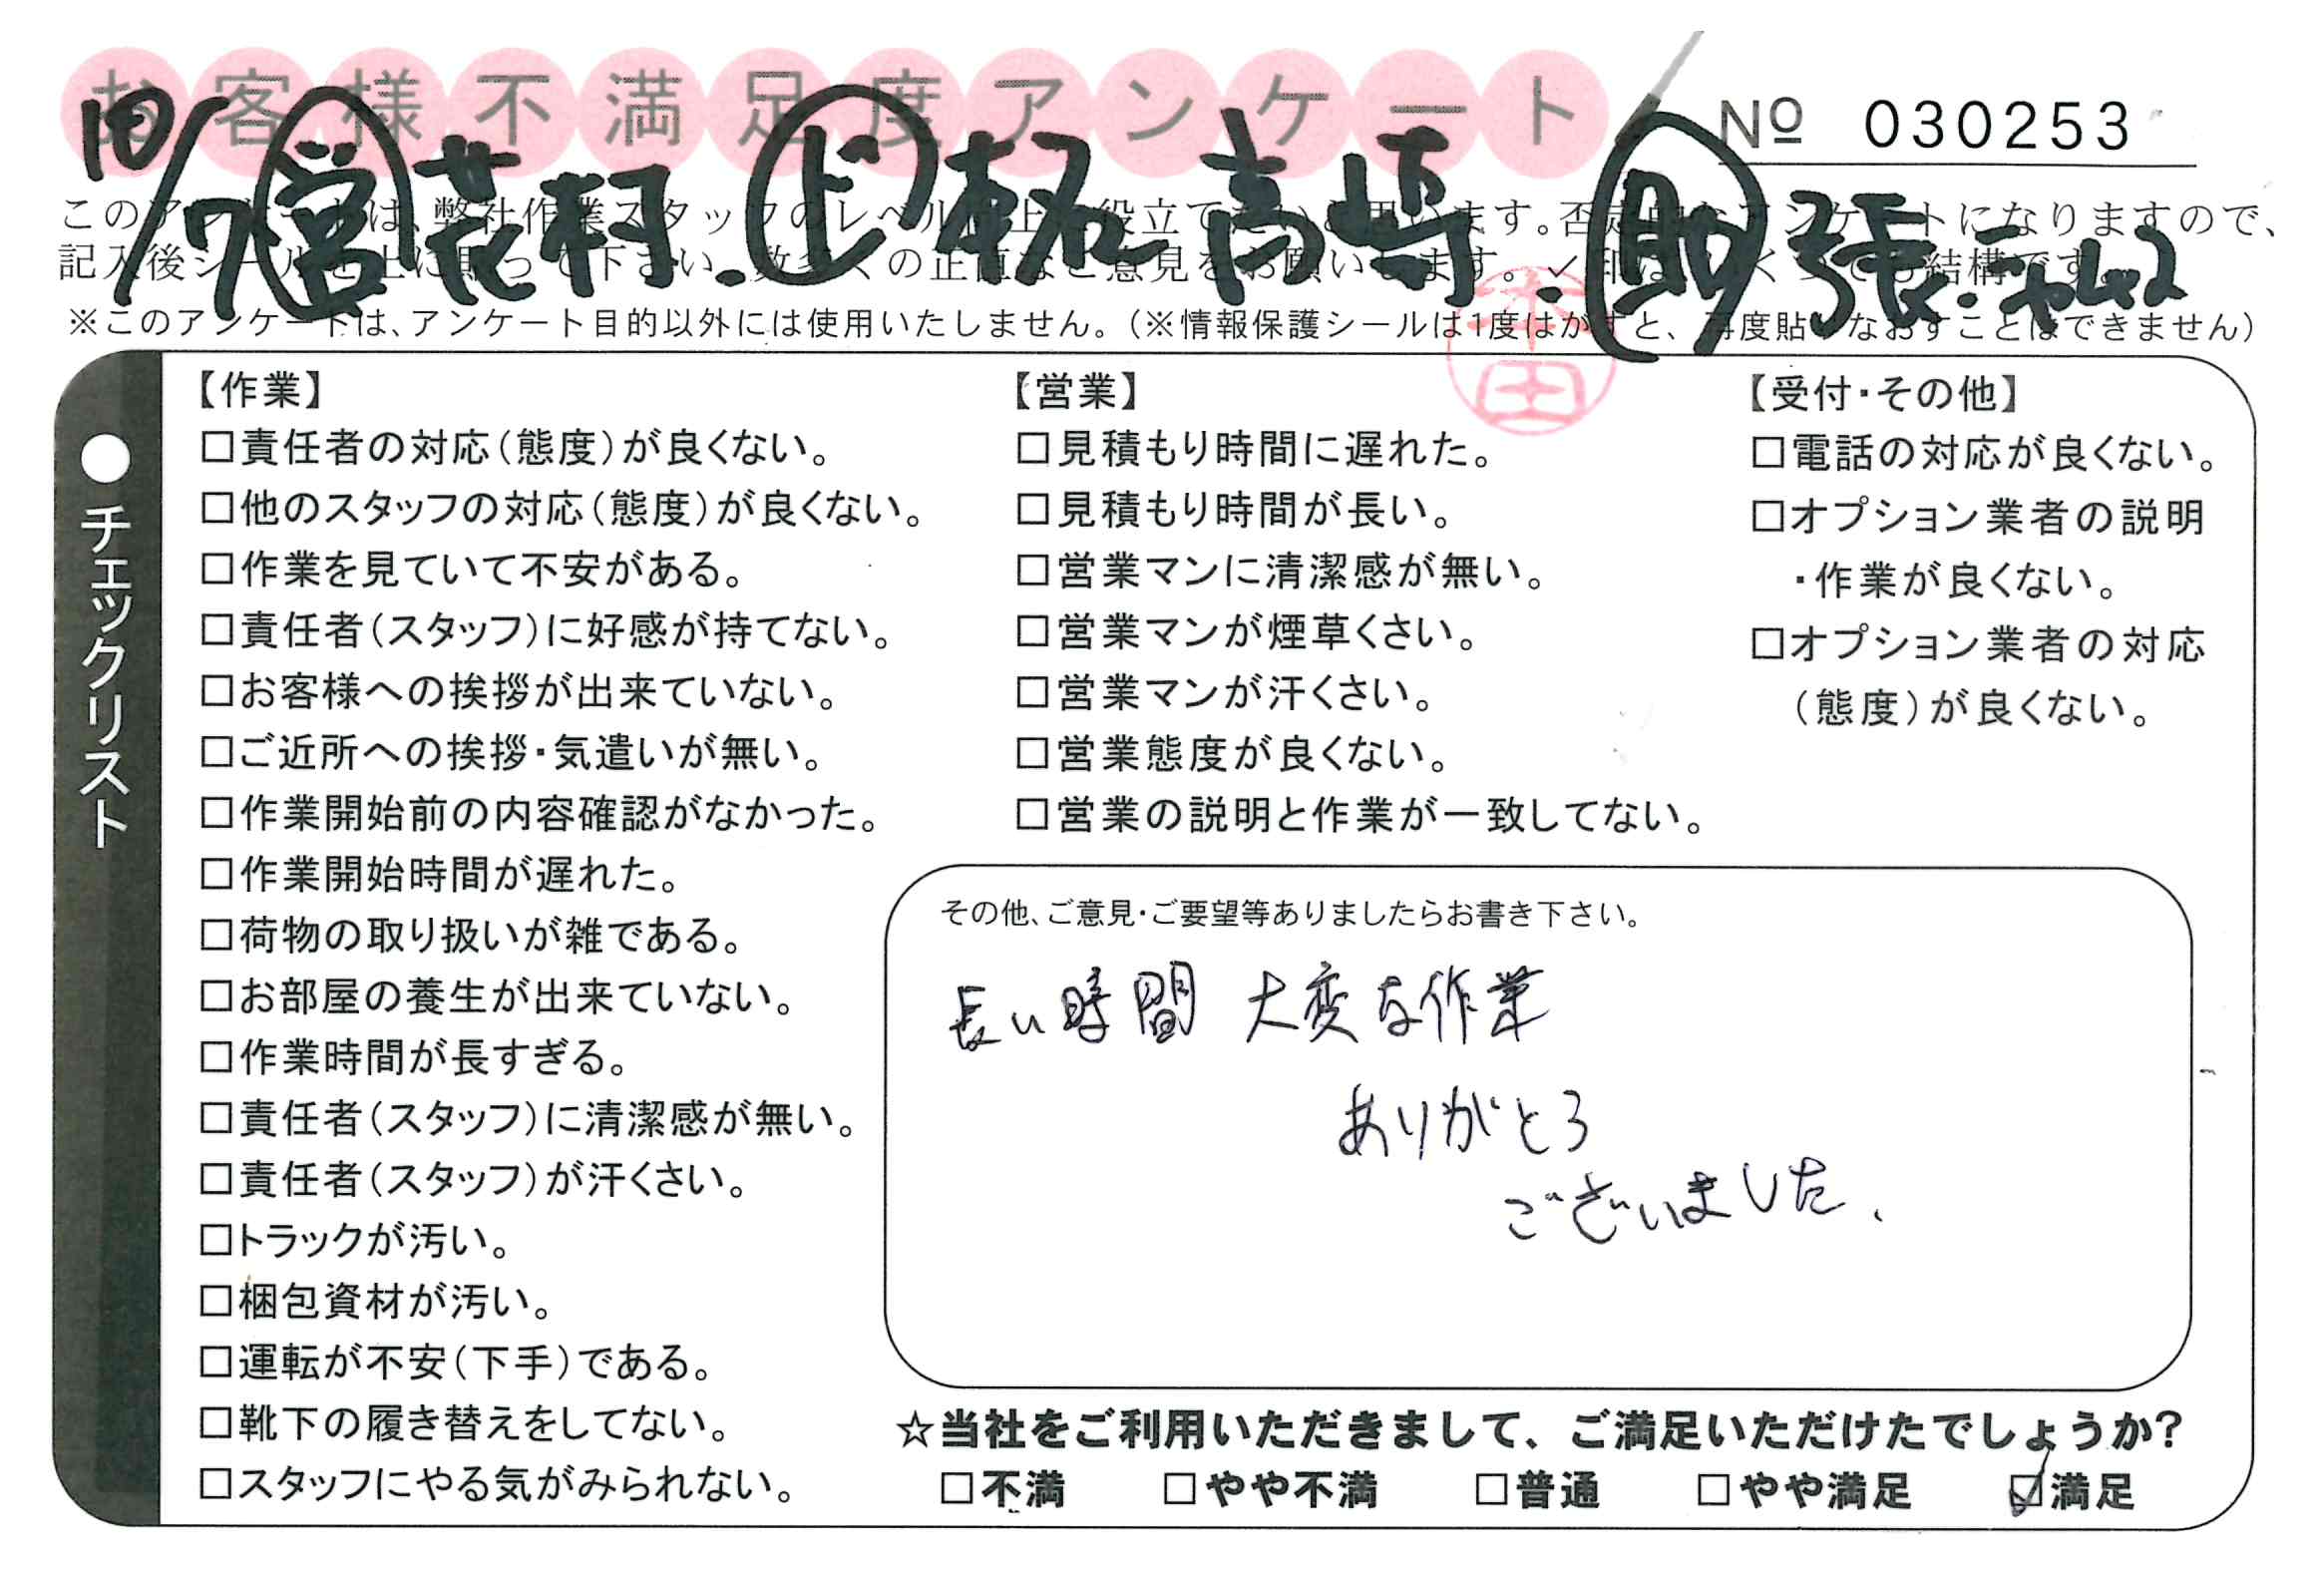 お客様不満足度アンケート
№ 030253
10/7 営 花村 . 上 高嶋 . 助 張.
このアンケートは、弊社作業スタッフのレベル
記入後シール
※このアンケートは、アンケート目的以外には使用いたしません。(※情報保護シールは1度はがすと、再度貼りなおすことはできません)
本田
●チェックリスト
【作業】
□責任者の対応(態度)が良くない。
□他のスタッフの対応(態度)が良くない。
□作業を見ていて不安がある。
□責任者(スタッフ)に好感が持てない。
□お客様への挨拶が出来ていない。
□ご近所への挨拶・気遣いが無い。
□作業開始前の内容確認がなかった。
□作業開始時間が遅れた。
□荷物の取り扱いが雑である。
□お部屋の養生が出来ていない。
□作業時間が長すぎる。
□責任者(スタッフ)に清潔感が無い。
□責任者(スタッフ)が汗くさい。
□トラックが汚い。
□梱包資材が汚い。
□運転が不安(下手)である。
□靴下の履き替えをしてない。
□スタッフにやる気がみられない。
【営業】
□見積もり時間に遅れた。
□見積もり時間が長い。
□営業マンに清潔感が無い。
□営業マンが煙草くさい。
□営業マンが汗くさい。
□営業態度が良くない。
□営業の説明と作業が一致してない。
【受付・その他】
□電話の対応が良くない。
□オプション業者の説明
・作業が良くない。
□オプション業者の対応
(態度)が良くない。
その他、ご意見・ご要望等ありましたらお書き下さい。
長い時間 大変な作業
ありがとう
ございました、
☆当社をご利用いただきまして、ご満足いただけたでしょうか?
□不満 □やや不満 □普通 □やや満足 ☑満足